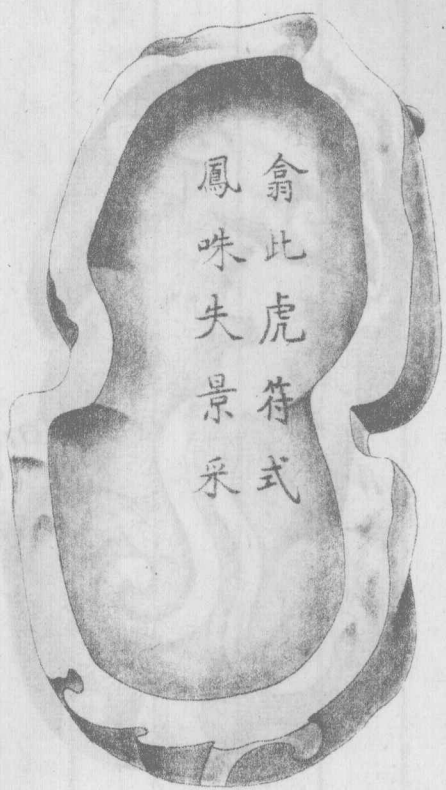 翕此虎符式
鳳咮失景采